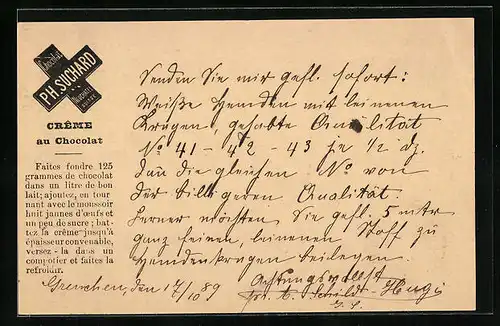 Chocolat
PH. SUCHARD
NEUCHATEL
SUISSE
CRÊME
au Chocolat
Faites fondre 125
grammes de chocolat
dans un litre de bon
lait; ajoutez, en tour
nant avec le moussoir
huit jaunes d'œufs et
un peu de sucre; bat-
tez la crême jusqu'à
épaisseur convenable,
versez-la dans un
compotier et faites la
refroidir.
Senden Sie mir gefl. sofort:
Weiße Hemden mit leinenen
Krägen, gehabte Qualität
No 41 - 42 - 43 je 1/2 dz.
dan die gleichen No von
der billigeren Qualität.
Ferner möchten Sie gefl. 5 mtr
ganz feinen, leinenen Stoff zu
Hemdenkragen beilegen.
Achtungsvollst
Grenchen, den 17/10 89
Schild-Hugi